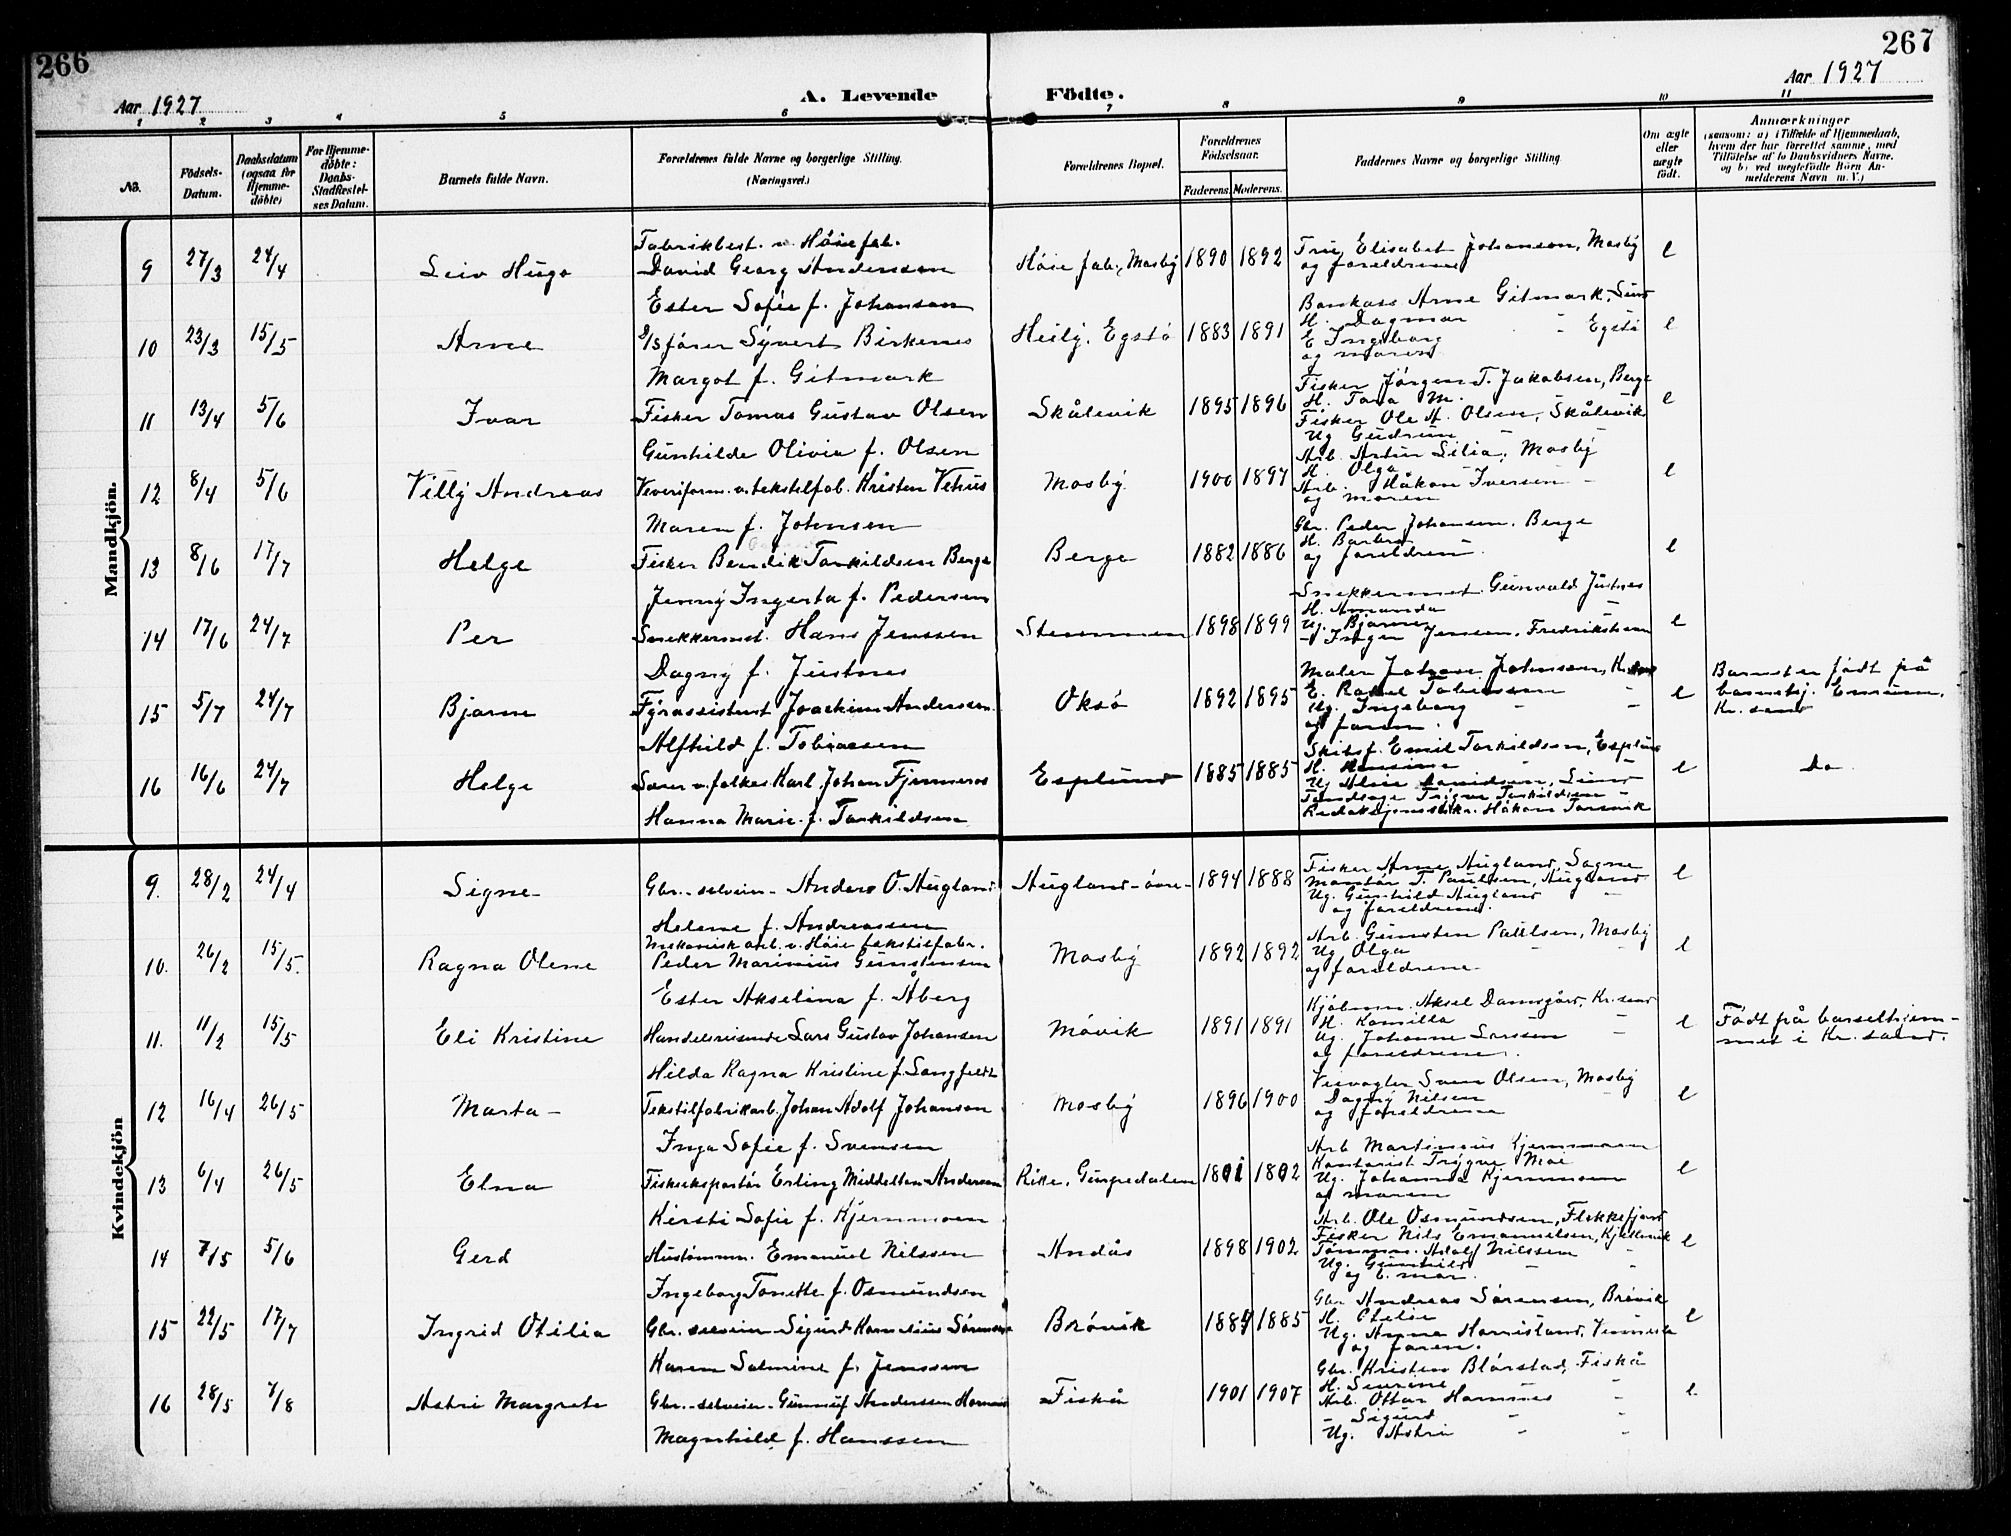 266
267
Aar 1927
A. Levende Födte.
Aar 1927
1 2 3 4 5 6 7 8 9 10 11
No.
Födsels-Datum.
Daabsdatum (ogsaa for Hjemme-döbte)
For Hjemme-döbte: Daabs-Stadfæstel-ses Datum.
Barnets fulde Navn.
Forældrenes fulde Navne og borgerlige Stilling. (Næringsvei.)
Forældrenes Bopæl.
Forældrenes Födselsaar.
Faderens. Moderens.
Faddernes Navne og borgerlige Stilling.
Om ægte eller uægte födt.
Anmærkninger
(saasom: a) i Tilfælde af Hjemmedaab, hvem der har forrettet samme, med Tilföielse af to Daabsvidners Navne, og b) ved uægtefödte Börn An-melderens Navn m. V.)
Mandkjön.
9 27/3 24/4 Leiv Hugo
Fabrikbest. v. Höie fab.
David Georg Andersson
Ester Sofie f. Johanson
Höie fab., Mosby 1890 1892
Fru Elisabet Johanson, Mosby
og foreldrene
e
10 23/3 15/5 Arne
E/sfører Syvert Birkenes
Margot f. Gitmark
Heilig. Egstö 1883 1891
Bankass Arne Gitmark, Lund
H. Dagmar
E Ingeborg - Egstö
og moren
e
11 13/4 5/6 Ivar
Fisker Tomas Gustav Olsen
Gunhilde Olivia f. Olsen
Skålevik 1895 1896
Fisker Jörgen T. Jakobsen, Berge
H. Tora M.
Fisker Ole A. Olsen, Skålevik
Ug Gudrun - -
e
12 8/4 5/6 Villy Andreas
Veveriform. v. tekstilfab. Kristen Vehus
Maren f. Johnsen
Mosby 1900 1897
Arb. Artur Lilia, Mosby
H. Olga
Arb. Håkon Iversen -
og moren
e
13 8/6 17/7 Helge
Fisker Bendik Torkildsen Berge
Jenny Ingerta f. Pedersen
Berge 1882 1886
Gbr. Peder Johansen, Berge
H. Barbro
og foreldrene
e
14 17/6 24/7 Per
Snekkermst. Hans Jenssen
Dagny f. Justnes
Stemmen 1898 1899
Snekkermst. Gunvald Justnes
H. Amanda -
Ug. Bjarne
- Inger Jensen, Fredrikshavn
e
15 5/7 24/7 Bjarne
Fyrassistent Joachim Anderssen
Alfhild f. Tobiassen
Oksö 1892 1895
Maler Johnsen, Kr.sand
E. Rakel Tobiassen -
Ug. Ingeborg - -
og faren.
e
Barnet er född på
barnehj. Emium,
Kr. sand
16 16/6 24/7 Helge
Karl Johan Fjermeros
Hanna Marie f. Torkildsen
Esplund 1885 1885
Skibsf. Emil Torkildsen, Esplund
H. Hansine -
Ug Davidsen, Lund
Trigve Torkildsen -
Redaksjonssekr. Håkon Torsvik
e
Do
Kvindekjön
9. 28/2 24/4 Signe-
Gbr.-selveier- Anders O. Augland
Helene f. Andreassen
Augland-övre- 1894 1888
Fisker Arne Augland, Sogne
Montör T. Paulsen, Augland
Ug. Gunhild Augland -
og foreldrene.
e
10. 26/2 15/5. Ragna Olene
Mekanisk arb. v. Höie tekstilfabr.
Peder Marinius Gunstensen
Ester Akselina f. Åberg
Mosby 1892 1892
Arb. Gunsten Paulsen, Mosby
Ug Olga - -
og foreldrene-
e
11. 11/2 15/5 Eli Kristine
Handelsreisende Lars Gustav Johansen
Hilda Ragna Kristine f. Langfeldt
Mövik 1891 1891
Kjöbmn. Aksel Damsgård, Kr.sand
H. Kamilla -
Ug. Johanne Larssen -
og foreldrene.
e
Född på barselhjem-
met i Kr. sand.
12 16/4 26/5 Marta-
Tekstilfabrikarb. Johan Adolf Johanson
Inga Sofie f. Svensen
Mosby 1896 1900
Veivogter Sven Olsen, Mosby
Dagny Nilsen -
og foreldrene
e
13 6/4 26/5 Elna
Fiskeeksportör Erling Middelton Andersen
Kirsti Sofie f. Kjernmoen
Rike, Gunpedalen 1901 1902
Arb Martinius Kjernmoen
Kontorist Trygve Moe
Ug. Johanna Kjernmoen
og moren
e
14 7/5 5/6 Gerd
Hustömmr. Emanuel Nilssen
Ingeborg Tonette f. Osmundsen
Andås 1898 1902
Arb. Ole Osmundsen, Flekkefjord
Fisker Nils Emanuelsen,
Tömmr. Adolf Nilssen -
Ug. Gunhild - -
og b. mor.
e
15 22/5 17/7 Ingrid Otilia
Gbr. selveier Sigurd Kornelius Sörensen
Karen Salmine f. Jenssen
Brövik 1884 1885
Gbr Andreas Sörensen, Brövik
H. Otelie
Ug. Anna Vennesla
og faren.
e
16 28/5 7/8 Astri Margrete
Gbr.-selveier- Gunnuf Anderssen Hamnes
Magnhild f. Hanssen
Fiskå 1901 1907
Gbr. Kristen Blörstad, Fiskå
H. Severine
Arb. Ottar Hamnes -
- Sigurd - -
Ug. Astri - -
e.